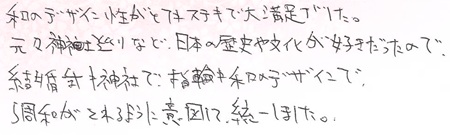 和のデザイン性がとてもステキで大満足でした。
元々神社巡りなど、日本の歴史や文化が好きだったので、
結婚式も神社で、指輪も和のデザインで、
調和がとれるように意図して、統一しました。